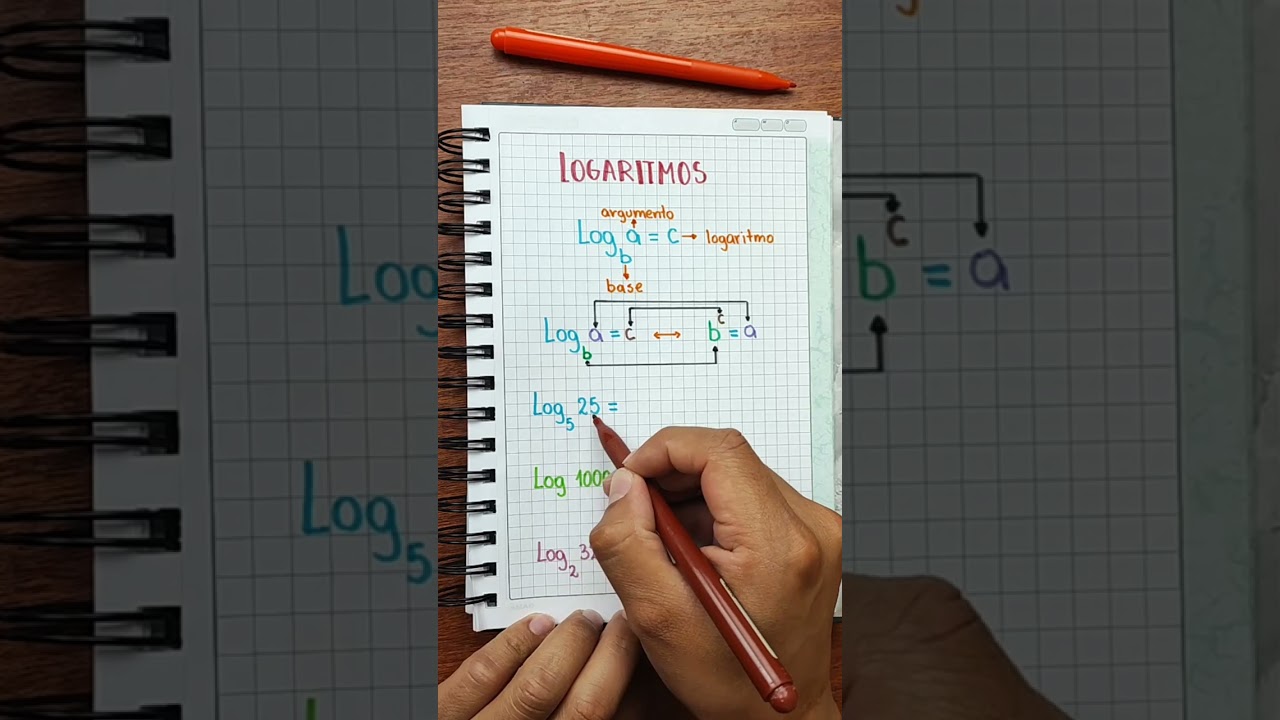 LOGARITMOS
argumento
Log_b a = c → logaritmo
base
Log_b a = c ↔ b^c = a
Log_5 25 =
Log 1000
Log_2 32